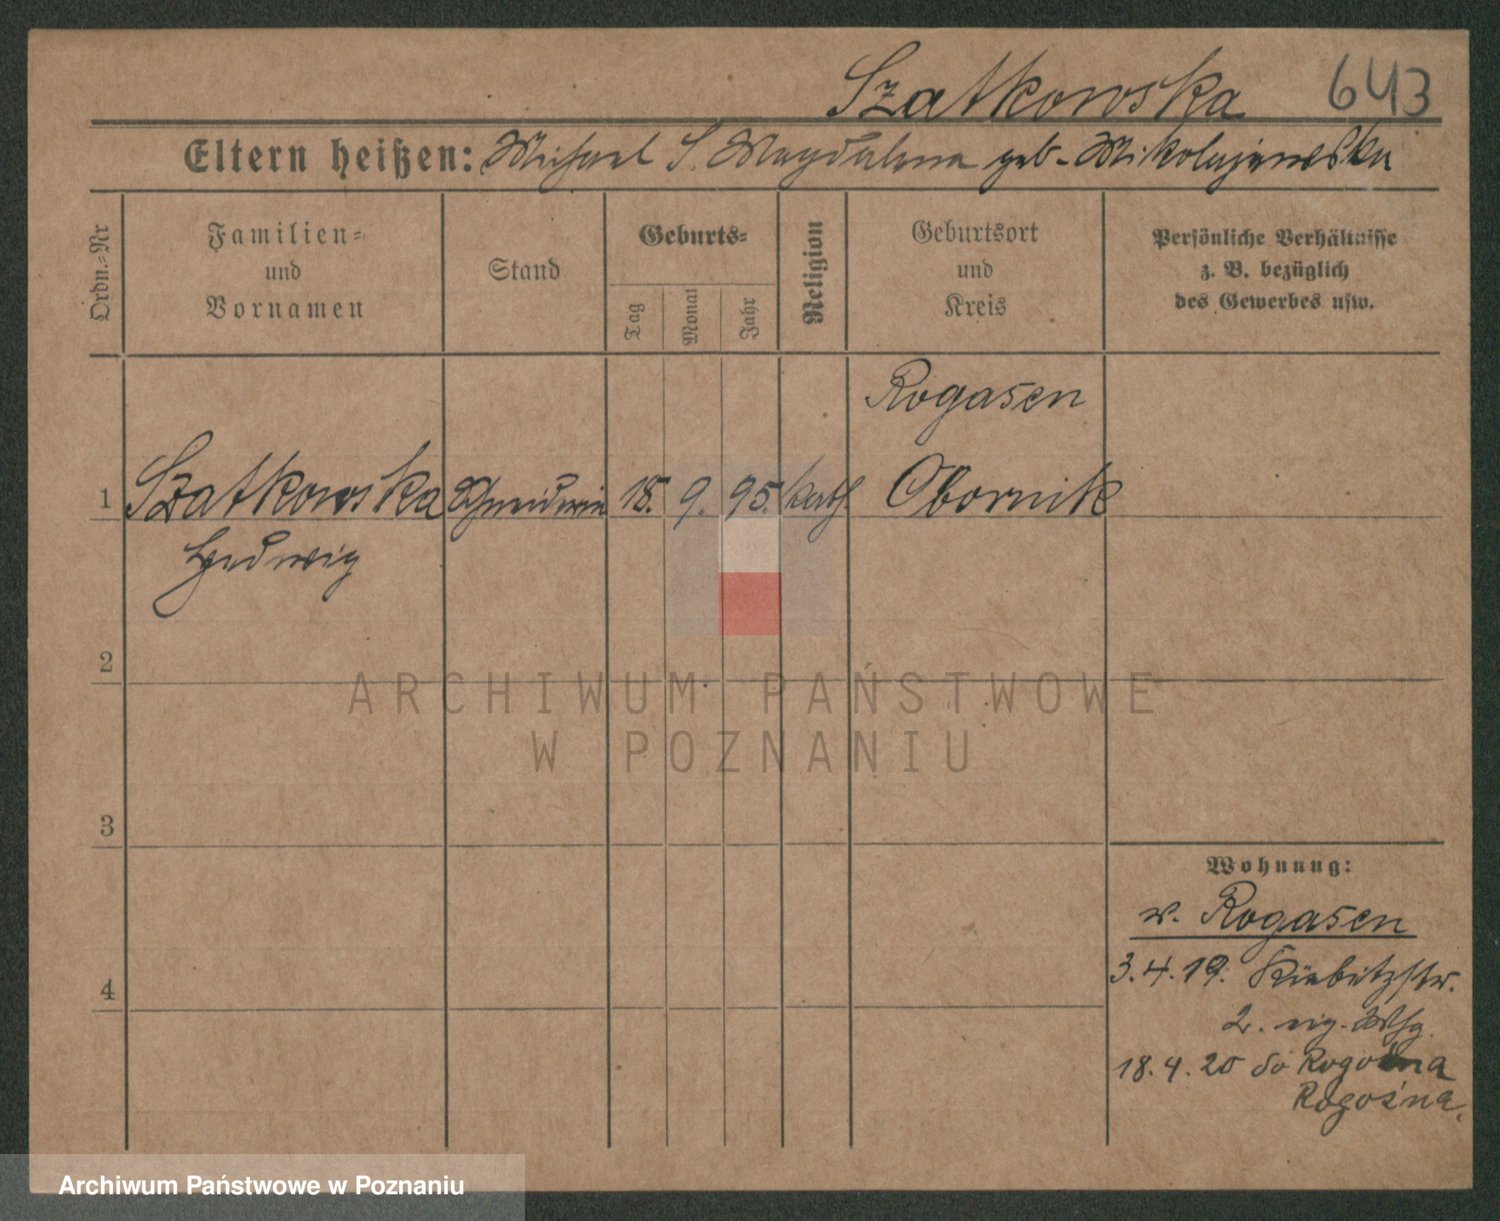 Szatkowska 643
Eltern heißen: Michael S. Magdalena geb. Mikolajewska
Ordn.-Nr
Familien-
und
Vornamen
Stand
Geburts-
Tag
Monat
Jahr
Religion
Geburtsort
und
Kreis
Persönliche Verhältnisse
z. B. bezüglich
des Gewerbes usw.
Rogasen
1 Szatkowska Schneiderin 18. 9. 95. kath. Obornik
Hedwig
2
ARCHIWUM PAŃSTWOWE
W POZNANIU
3
Wohnung:
v. Rogasen
3.4.19. Kiebitzstr.
2. eig. Whg.
4
18.4.20 do
Rogoźna.
Archiwum Państwowe w Poznaniu